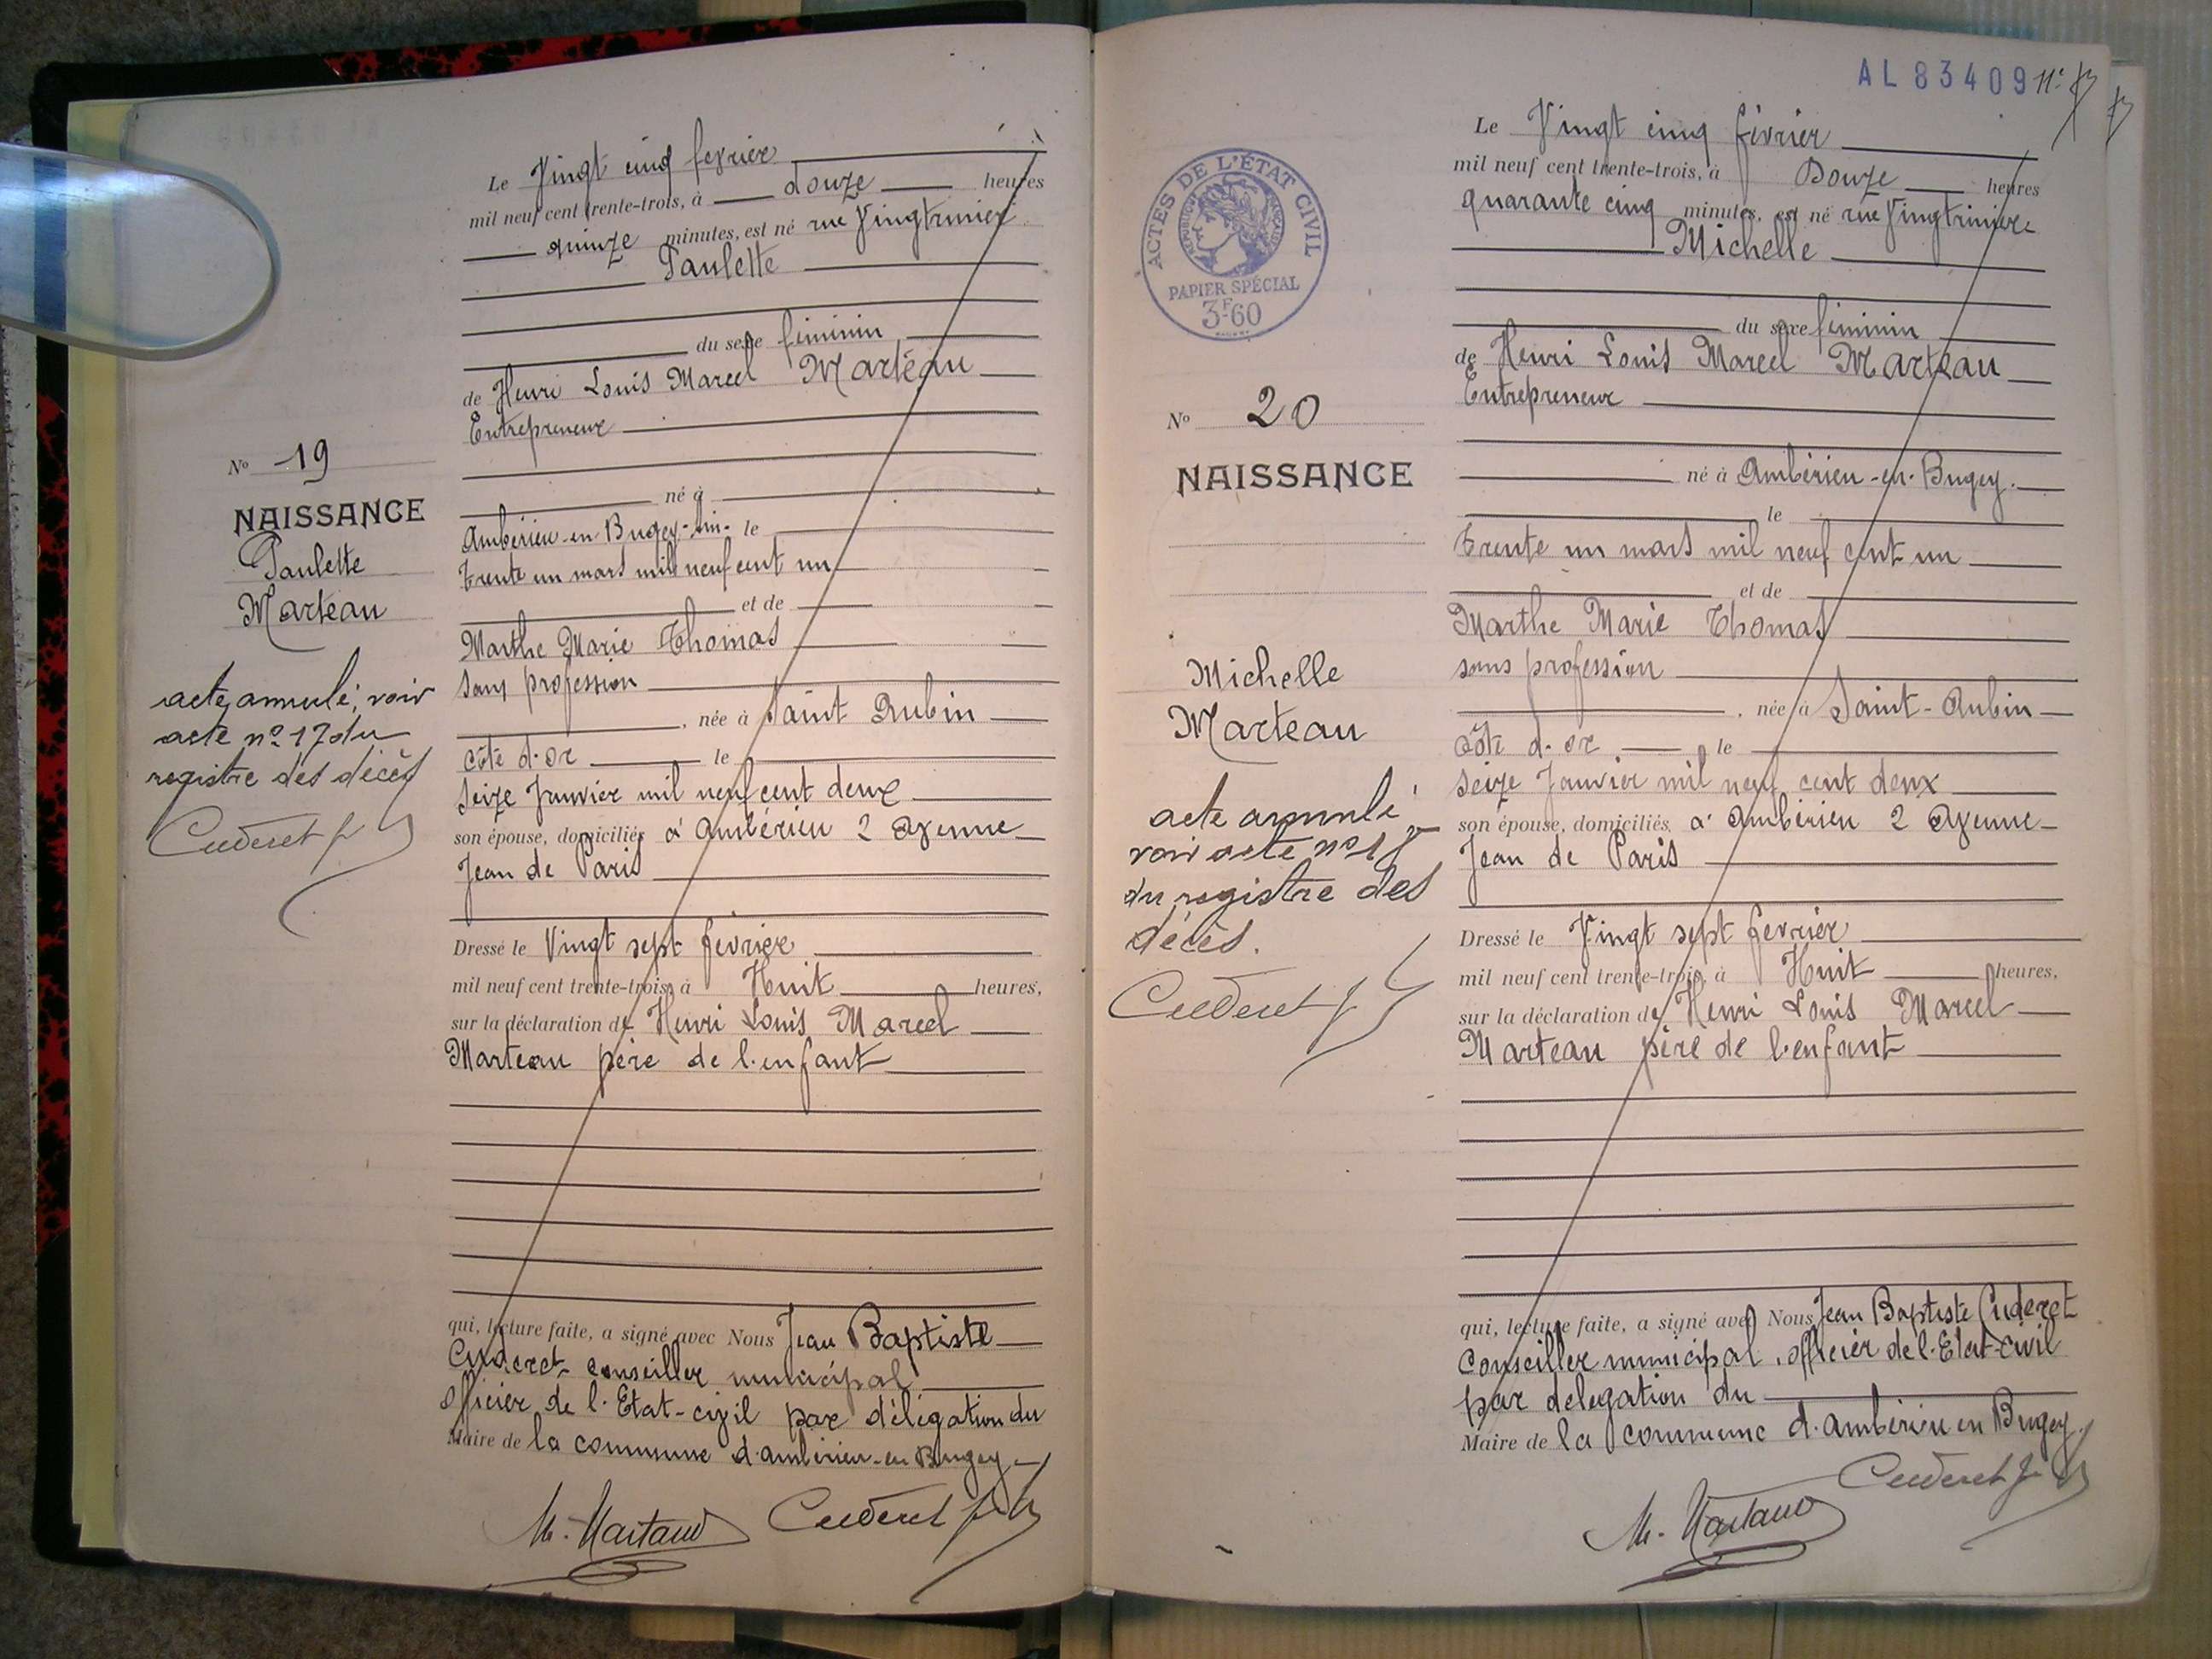 Le Vingt cinq fevrier
mil neuf cent trente-trois, à douze heures
quinze minutes, est né rue Vingtrinier
Paulette
du sexe féminin
de Henri Louis Marcel Marteau
Entrepreneur
né à
Ambérieu-en-Bugey-Ain- le
trente un mars mil neuf cent un
et de
Marthe Marie Thomas
sans profession
, née à Saint Aubin
Côte d'or le
seize Janvier mil neuf cent deux
son épouse, domiciliés à Ambérieu 2 Avenue
Jean de Paris
Dressé le Vingt sept février
mil neuf cent trente-trois, à Huit heures,
sur la déclaration de Henri Louis Marcel
Marteau père de l'enfant
qui, lecture faite, a signé avec Nous Jean Baptiste
Cuderet conseiller municipal
officier de l'Etat-civil par délégation du
Maire de la commune d'Ambérieu-en-Bugey
M. Marteau Cuderet
No 19
NAISSANCE
Paulette
Marteau
acte annulé, voir
acte no 17 du
registre des décès
Cuderet
AL 83409
ACTES DE L'ÉTAT CIVIL
RÉPUBLIQUE FRANÇAISE
PAPIER SPÉCIAL
3F60
No 20
NAISSANCE
Michelle
Marteau
acte annulé
voir acte no 18
du registre des
décès.
Cuderet
Le Vingt cinq février
mil neuf cent trente-trois, à Douze heures
quarante cinq minutes, est né rue Vingtrinier
Michelle
du sexe féminin
de Henri Louis Marcel Marteau
Entrepreneur
né à Ambérieu-en-Bugey
le
trente un mars mil neuf cent un
et de
Marthe Marie Thomas
sans profession
, née à Saint-Aubin
Côte d'or le
seize Janvier mil neuf cent deux
son épouse, domiciliés à Ambérieu 2 Avenue
Jean de Paris
Dressé le Vingt sept fevrier
mil neuf cent trente-trois, à Huit heures,
sur la déclaration de Henri Louis Marcel
Marteau père de l'enfant
qui, lecture faite, a signé avec Nous Jean Baptiste Cuderet
Conseiller municipal, officier de l'Etat-civil
par delegation du
Maire de la commune d'Ambérieu en Bugey.
M. Marteau Cuderet